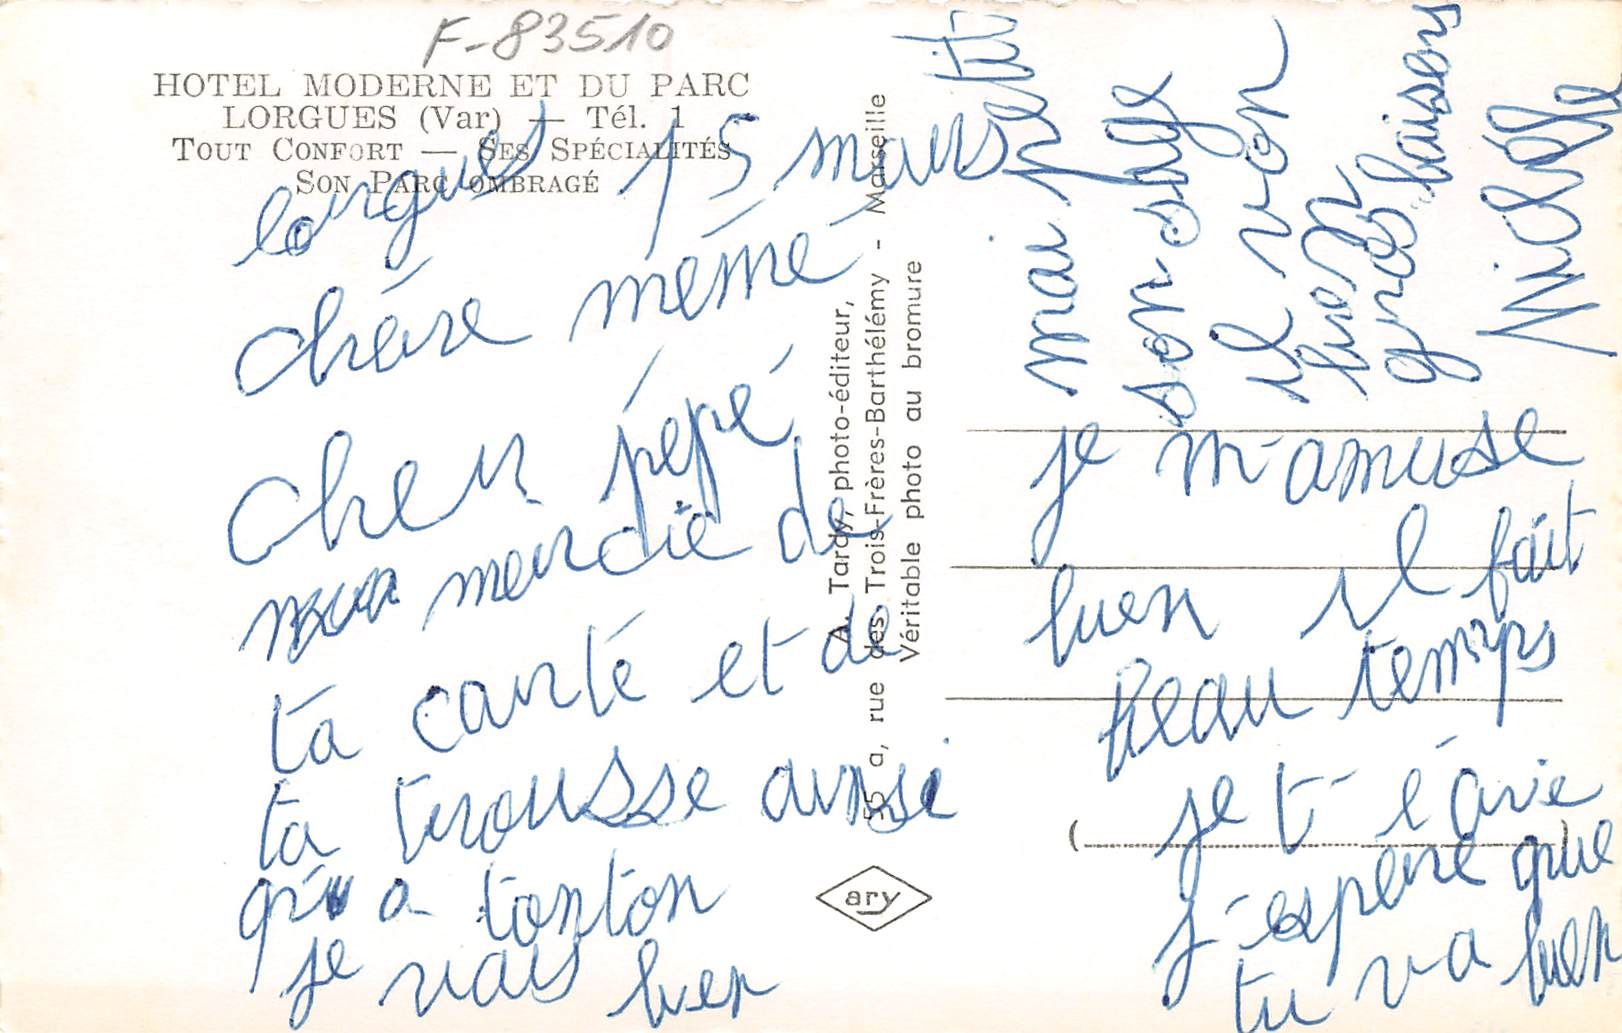 F-83510
HOTEL MODERNE ET DU PARC
LORGUES (Var) — Tél. 1
TOUT CONFORT — SES SPÉCIALITÉS
SON PARC OMBRAGÉ
lorgues 15 mars
chère mémé
cher pépé
mercie de
ta carte et de
ta trousse ainsi
qu'a tonton
je vais bien
A. Tardy, photo-éditeur,
55 a, rue des Trois-Frères-Barthélémy - Marseille
Véritable photo au bromure
ary
je m'amuse
bien il fait
beau temps
je t'écrie
j'espère que
tu va bien
mai petit
son
il von
bien
gros baisers